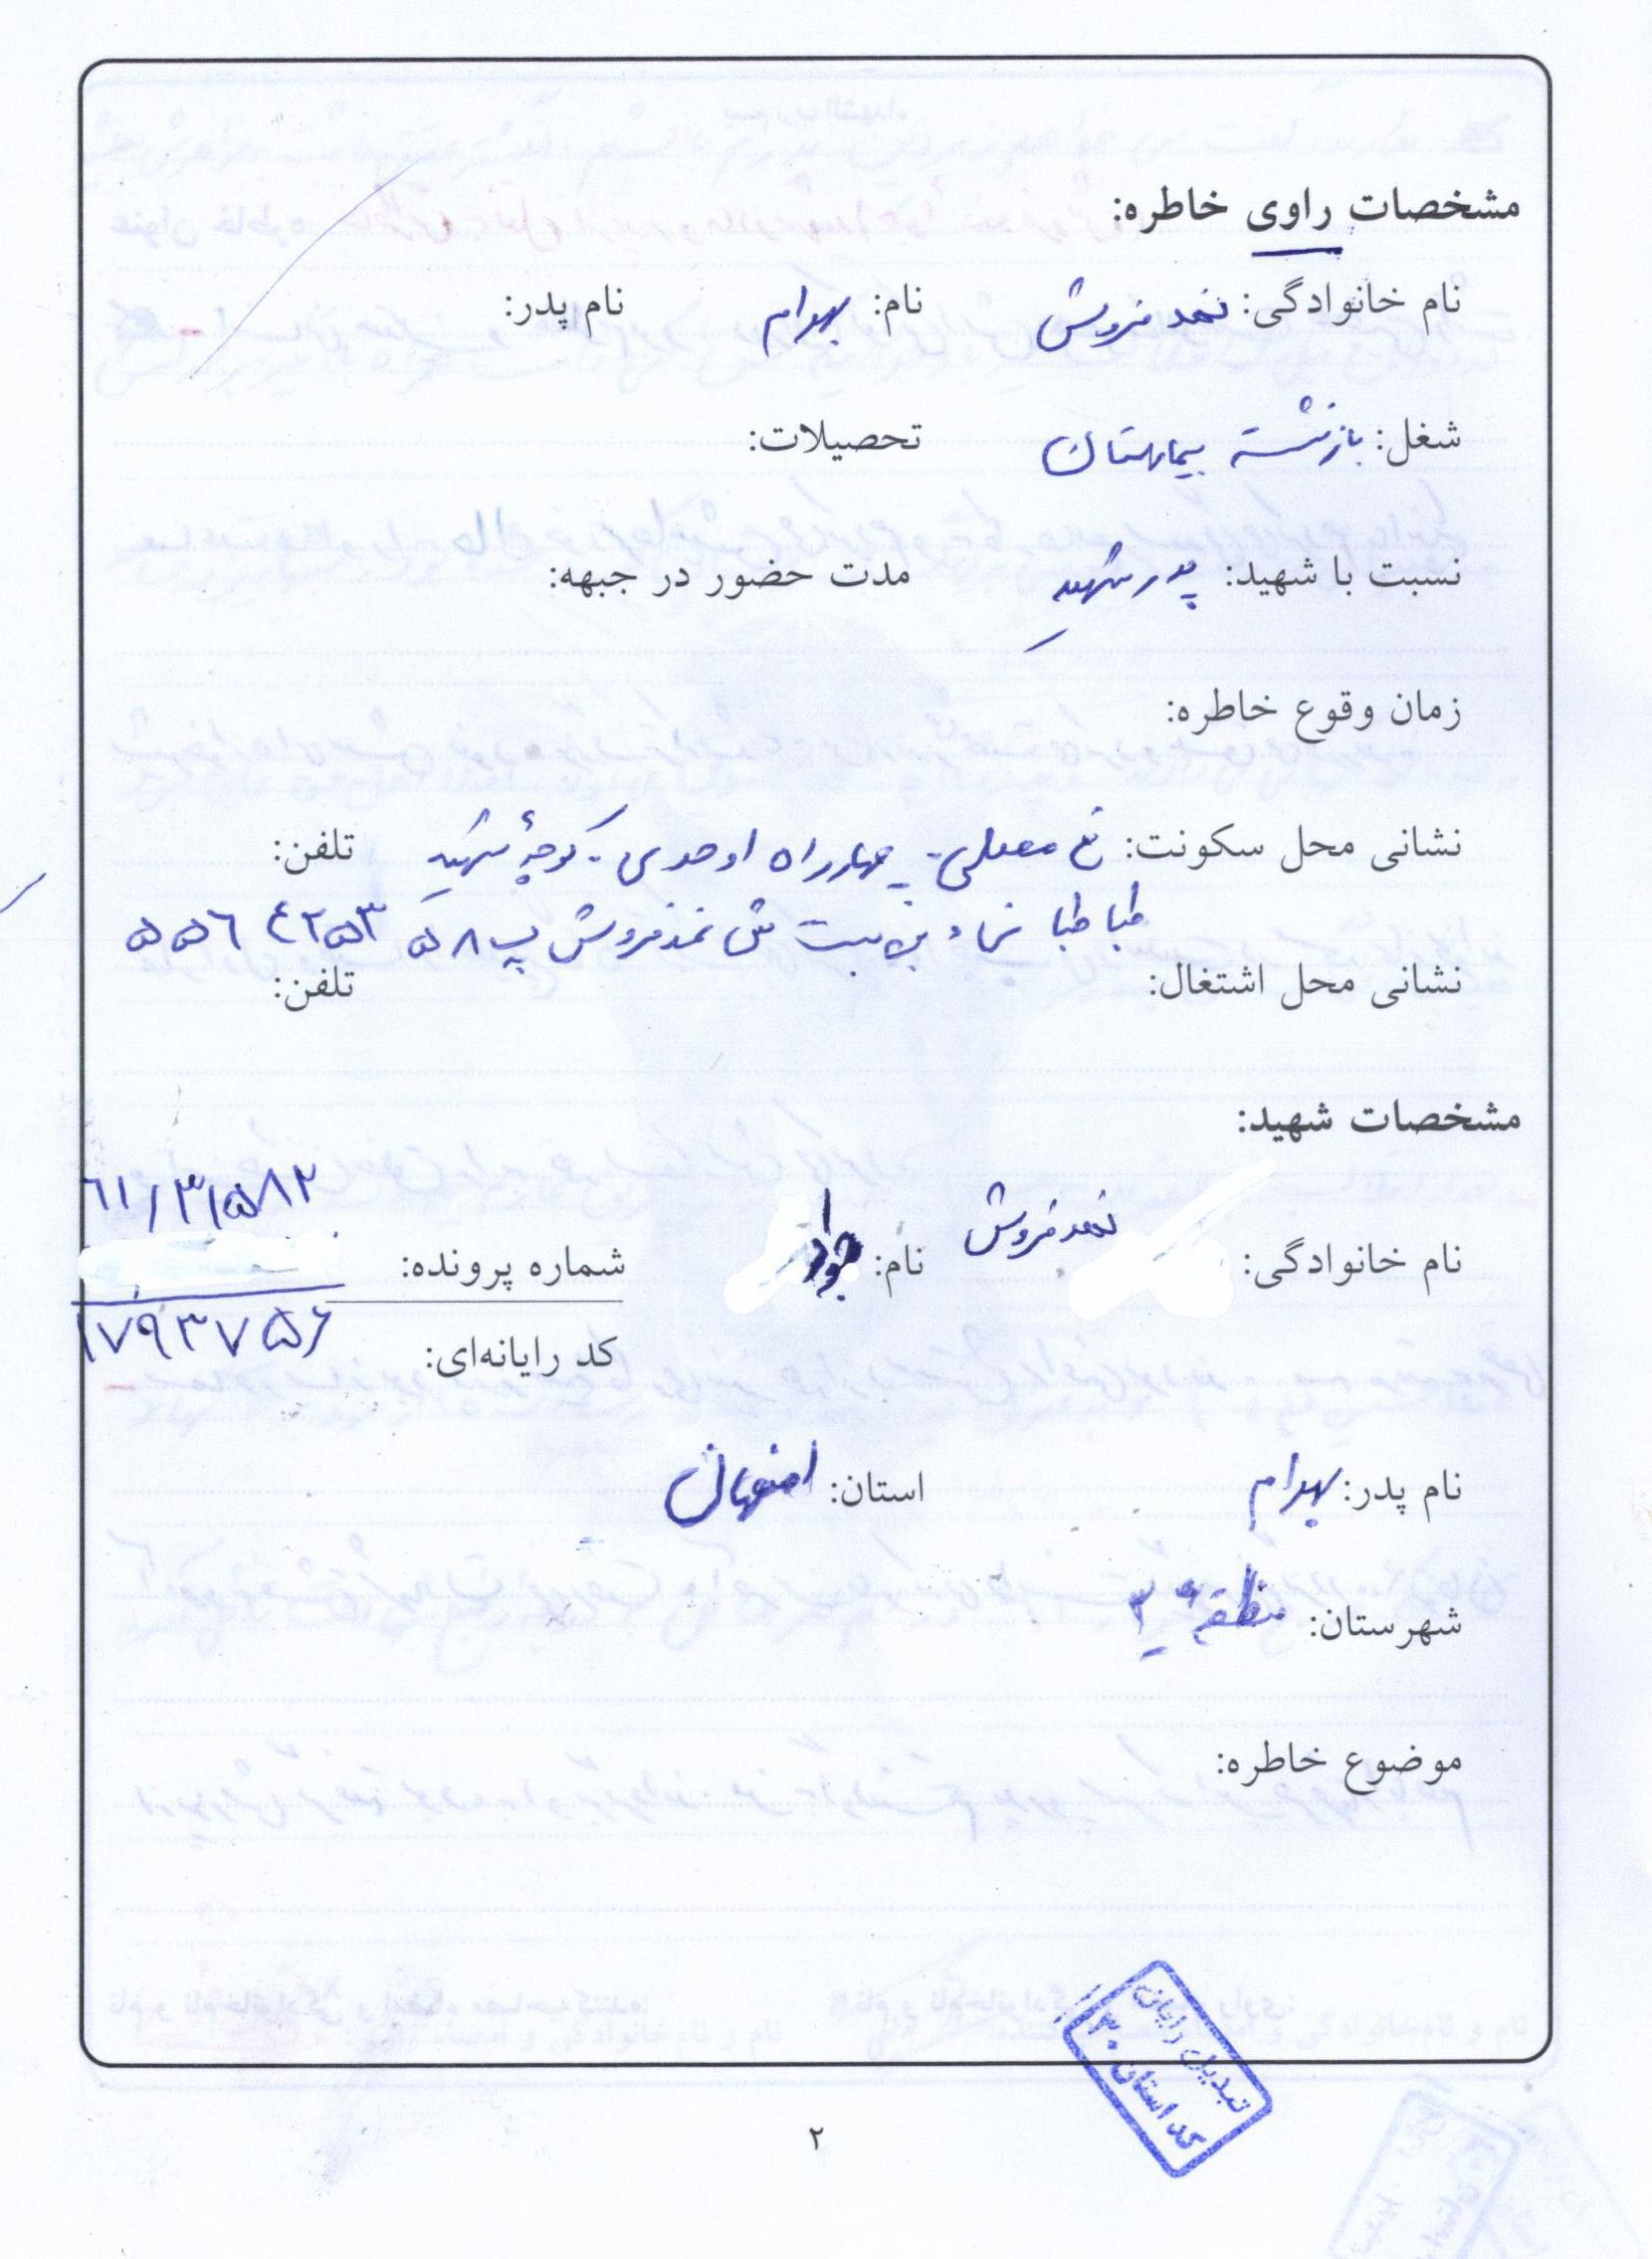 مشخصات راوی خاطره:
نام خانوادگی: نمدفروش نام: بهرام نام پدر:
شغل: بازنشسته بیمارستان تحصیلات:
نسبت با شهید: پدر شهید مدت حضور در جبهه:
زمان وقوع خاطره:
نشانی محل سکونت: خ معلی - چهارراه اوحدی - کوچهٔ شهید تلفن:
طباطبا نژاد بن بست ش نمدفروش پ ۵۸ ۵۵۶ ۴۲۵۳
نشانی محل اشتغال: تلفن:
مشخصات شهید:
نام خانوادگی: نمدفروش نام: جواد شماره پرونده: ۶۱/۳۱۵۸۲
کد رایانه‌ای: ۱۷۹۳۷۵۶
نام پدر: بهرام استان: اصفهان
شهرستان: منطقهٔ ۳
موضوع خاطره:
تبدیل رایان
کد استان ۳۰
۲